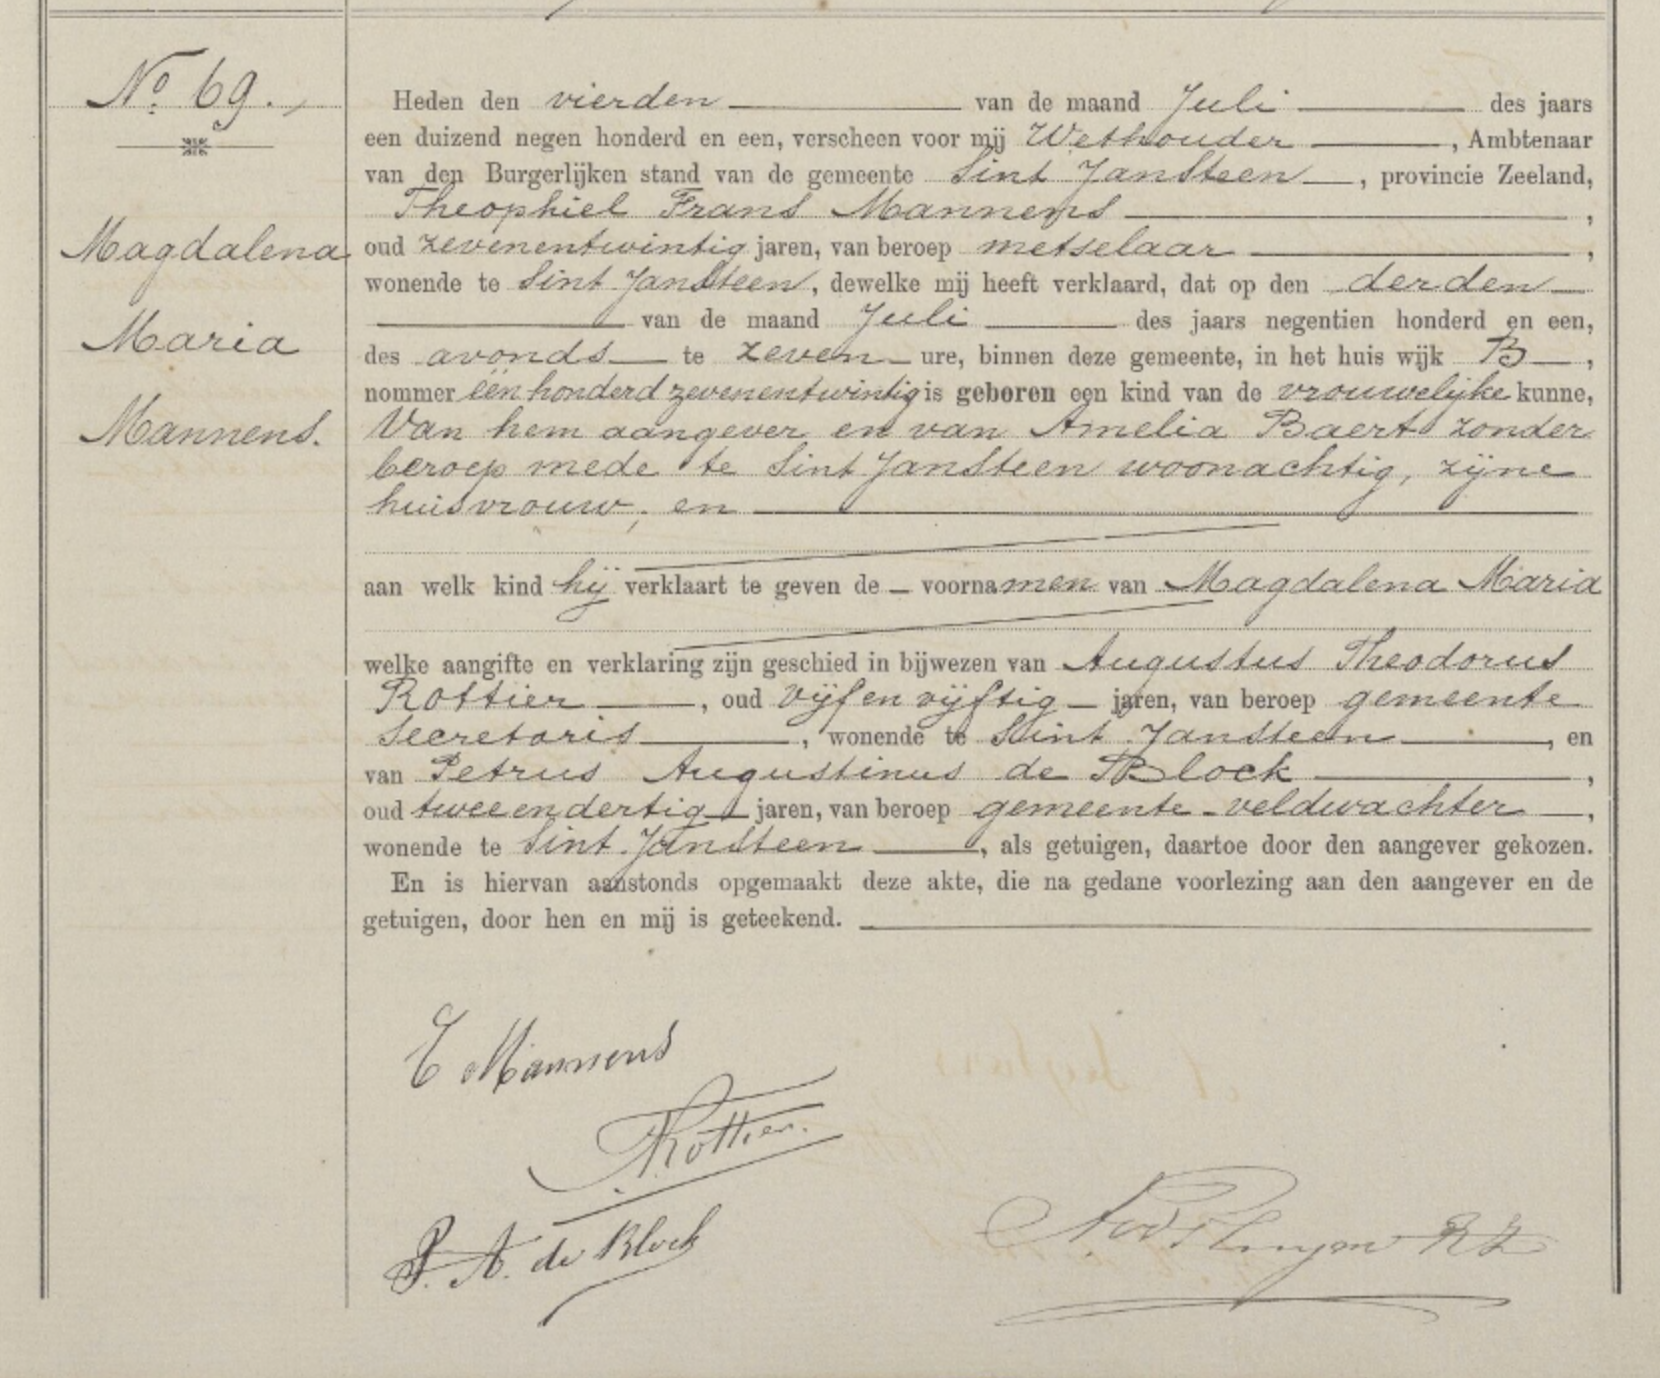 No. 69.
Magdalena
Maria
Mannens.
Heden den vierden van de maand Juli des jaars
een duizend negen honderd en een, verscheen voor mij Wethouder, Ambtenaar
van den Burgerlijken stand van de gemeente Sint Jansteen, provincie Zeeland,
Theophiel Frans Mannens,
oud zevenentwintig jaren, van beroep metselaar,
wonende te Sint Jansteen, dewelke mij heeft verklaard, dat op den derden
van de maand Juli des jaars negentien honderd en een,
des avonds te zeven ure, binnen deze gemeente, in het huis wijk B,
nommer één honderd zevenentwintig is geboren een kind van de vrouwelijke kunne,
Van hem aangever en van Amelia Baert zonder
beroep mede te Sint Jansteen woonachtig, zijne
huisvrouw, en
aan welk kind hij verklaart te geven de voornamen van Magdalena Maria
welke aangifte en verklaring zijn geschied in bijwezen van Augustus Theodorus
Rottier, oud vijfenvijftig jaren, van beroep gemeente
secretaris, wonende te Sint Jansteen, en
van Petrus Augustinus de Block,
oud tweeendertig jaren, van beroep gemeente-veldwachter,
wonende te Sint Jansteen, als getuigen, daartoe door den aangever gekozen.
En is hiervan aanstonds opgemaakt deze akte, die na gedane voorlezing aan den aangever en de
getuigen, door hen en mij is geteekend.
Mannens
Rottier.
P. A. de Block